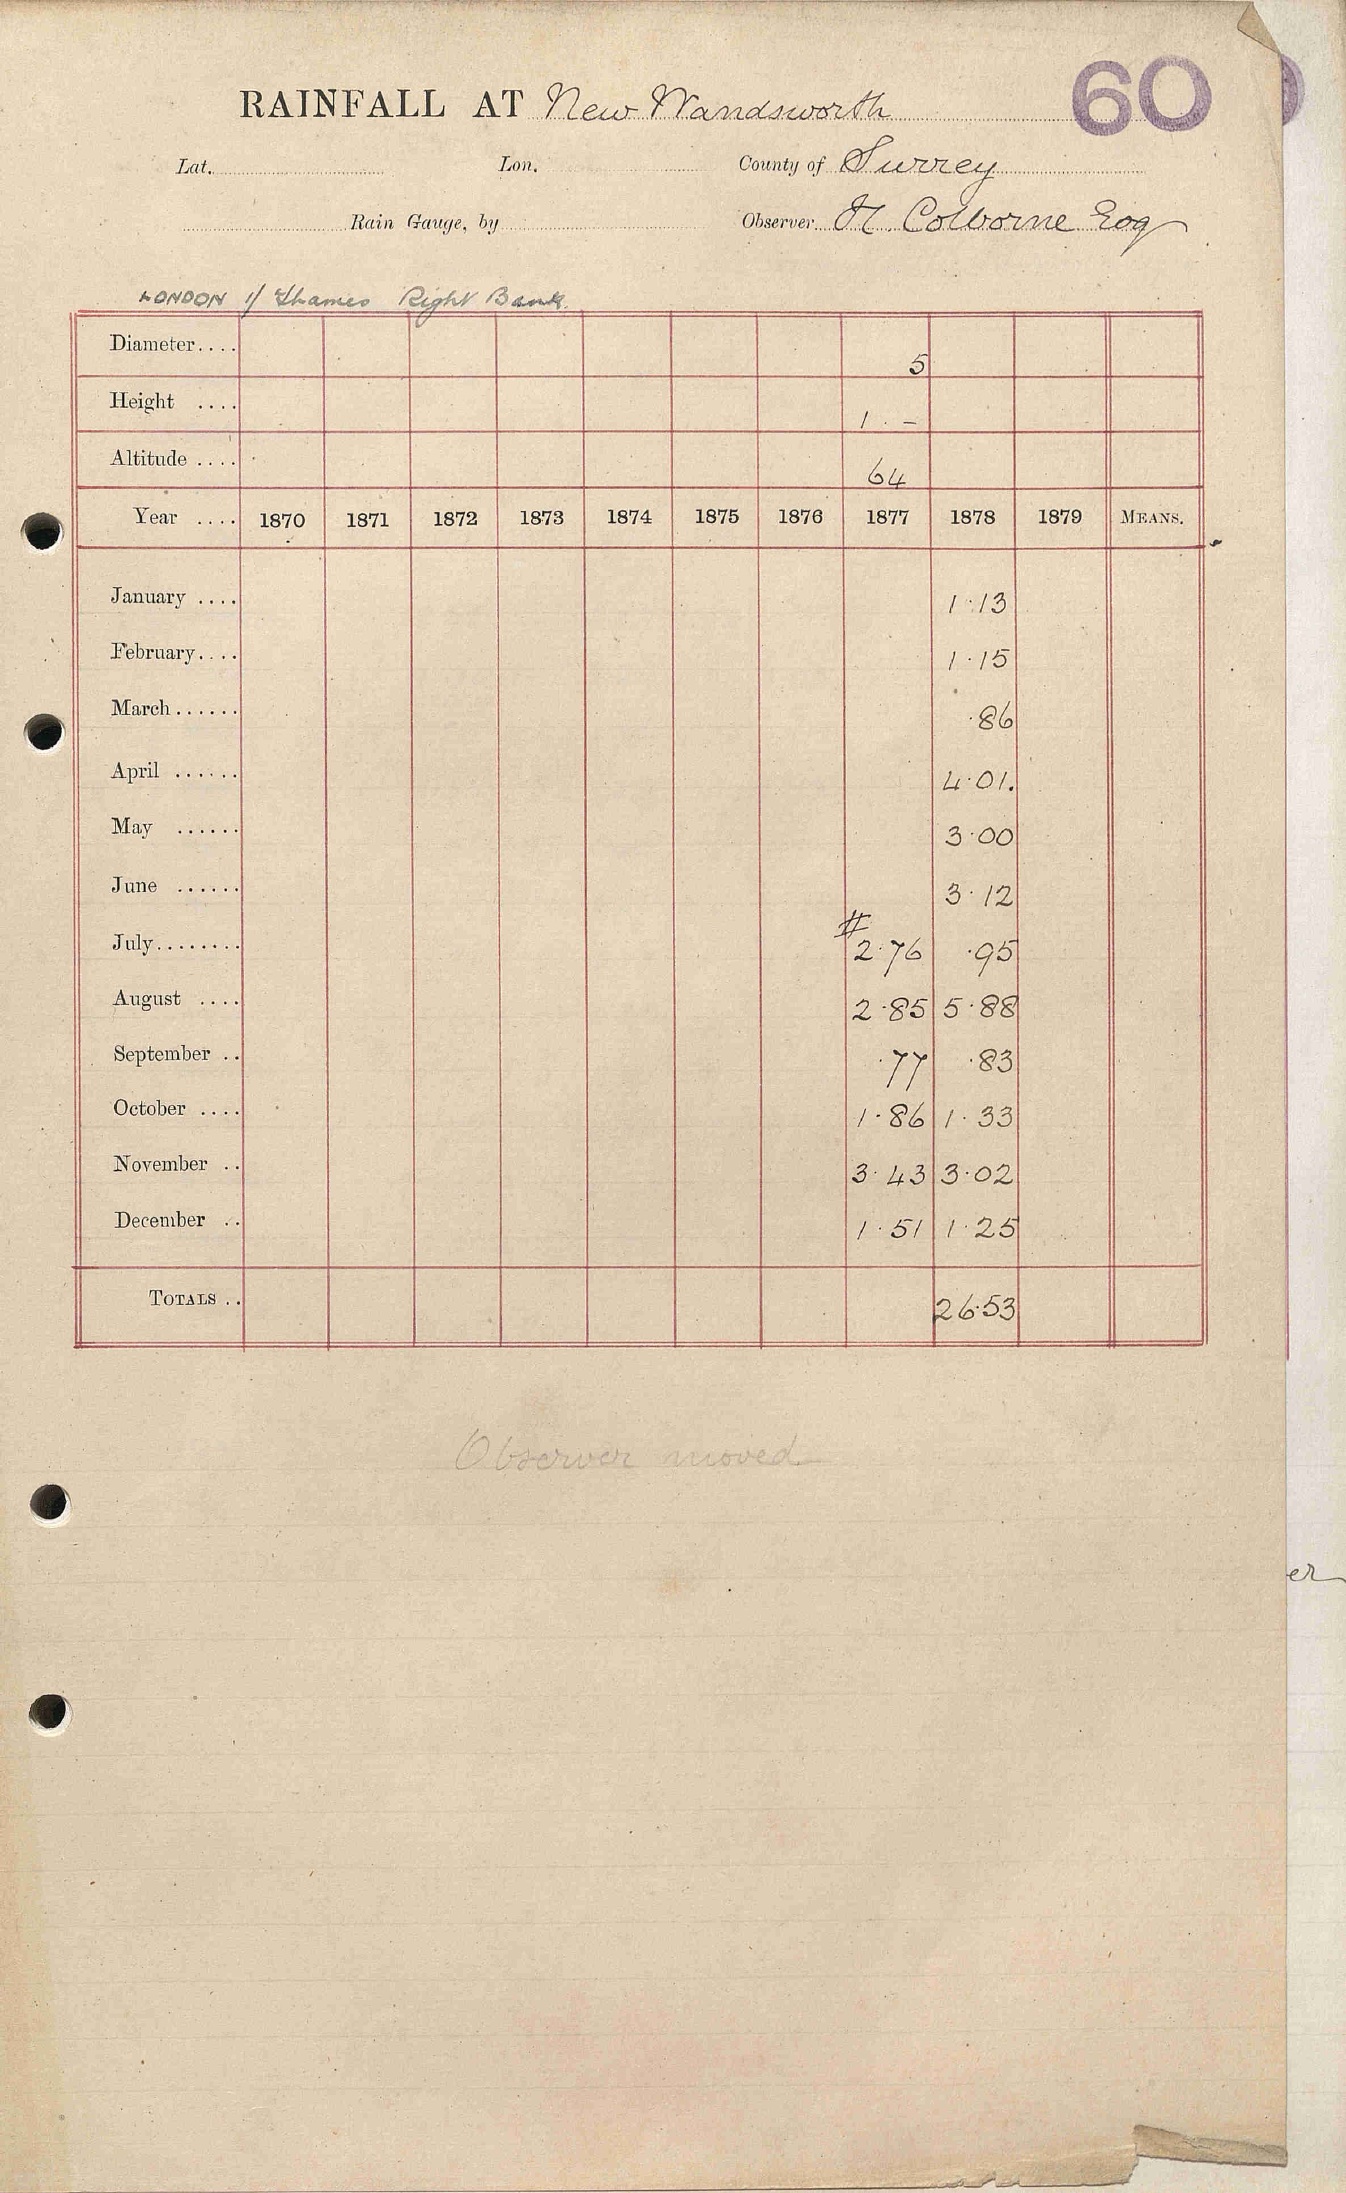 60
RAINFALL AT New Wandsworth
Lat. Lon. County of Surrey
Rain Gauge, by Observer H. Colborne Esq
LONDON 1/ Thames Right Bank.
Diameter.... 5
Height .... 1 . –
Altitude .... 64
Year .... 1870 1871 1872 1873 1874 1875 1876 1877 1878 1879 MEANS.
January .... 1·13
February.... 1·15
March...... ·86
April ...... 4·01.
May ...... 3·00
June ...... 3·12
July........ # 2·76 ·95
August .... 2·85 5·88
September .. ·77 ·83
October .... 1·86 1·33
November .. 3·43 3·02
December .. 1·51 1·25
TOTALS .. 26·53
Observer moved
er